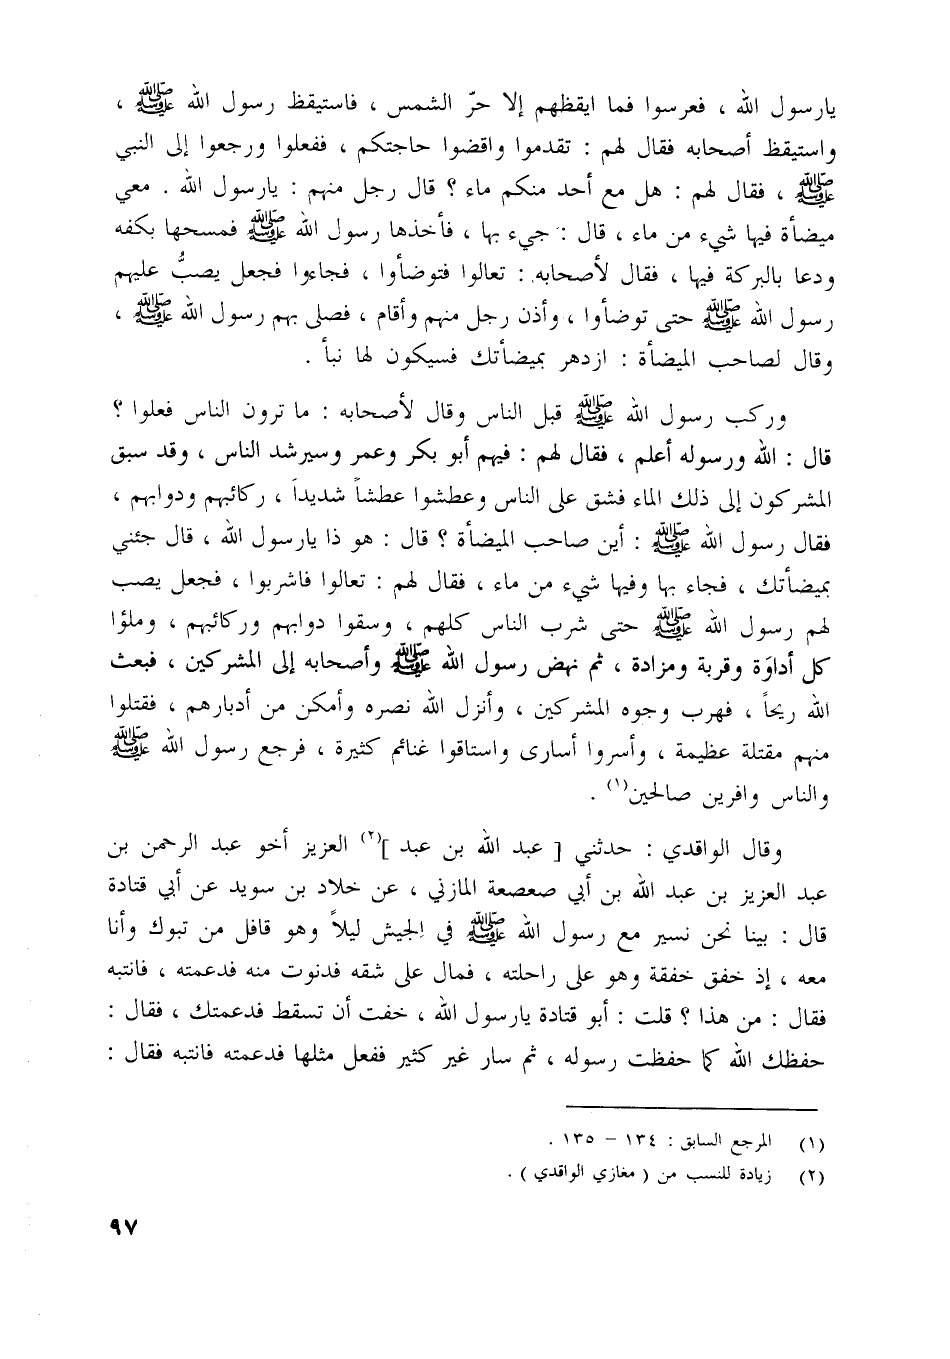 يارسول الله ، فعرسوا فما ايقظهم إلا حرّ الشمس ، فاستيقظ رسول الله ﷺ ،
واستيقظ أصحابه فقال لهم : تقدموا واقضوا حاجتكم ، ففعلوا ورجعوا إلى النبي
ﷺ ، فقال لهم : هل مع أحد منكم ماء ؟ قال رجل منهم : يارسول الله . معي
ميضأة فيها شيء من ماء ، قال : جيء بها ، فأخذها رسول الله ﷺ فمسحها بكفه
ودعا بالبركة فيها ، فقال لأصحابه : تعالوا فتوضأوا ، فجاءوا فجعل يصبُّ عليهم
رسول الله ﷺ حتى توضأوا ، وأذن رجل منهم وأقام ، فصلى بهم رسول الله ﷺ ،
وقال لصاحب الميضأة : ازدهر بميضأتك فسيكون لها نبأ .
وركب رسول الله ﷺ قبل الناس وقال لأصحابه : ما ترون الناس فعلوا ؟
قال : الله ورسوله أعلم ، فقال لهم : فيهم أبو بكر وعمر وسيرشد الناس ، وقد سبق
المشركون إلى ذلك الماء فشق على الناس وعطشوا عطشاً شديداً ، ركائبهم ودوابهم ،
فقال رسول الله ﷺ : أين صاحب الميضأة ؟ قال : هو ذا يارسول الله ، قال جئني
بميضأتك ، فجاء بها وفيها شيء من ماء ، فقال لهم : تعالوا فاشربوا ، فجعل يصب
لهم رسول الله ﷺ حتى شرب الناس كلهم ، وسقوا دوابهم وركائبهم ، وملؤا
كل أداوَة وقربة ومزادة ، ثم نهض رسول الله ﷺ وأصحابه إلى المشركين ، فبعث
الله ريحاً ، فهرب وجوه المشركين ، وأنزل الله نصره وأمكن من أدبارهم ، فقتلوا
منهم مقتلة عظيمة ، وأسروا أسارى واستاقوا غنائم كثيرة ، فرجع رسول الله ﷺ
والناس وافرين صالحين(١) .
وقال الواقدي : حدثني [ عبد الله بن عبد ](٢) العزيز أخو عبد الرحمن بن
عبد العزيز بن عبد الله بن أبي صعصعة المازني ، عن خلاد بن سويد عن أبي قتادة
قال : بينا نحن نسير مع رسول الله ﷺ في الجيش ليلاً وهو قافل من تبوك وأنا
معه ، إذ خفق خفقة وهو على راحلته ، فمال على شقه فدنوت منه فدعمته ، فانتبه
فقال : من هذا ؟ قلت : أبو قتادة يارسول الله ، خفت أن تسقط فدعمتك ، فقال :
حفظك الله كما حفظت رسوله ، ثم سار غير كثير ففعل مثلها فدعمته فانتبه فقال :
(١) المرجع السابق : ١٣٤ – ١٣٥ .
(٢) زيادة للنسب من ( مغازي الواقدي ) .
٩٧